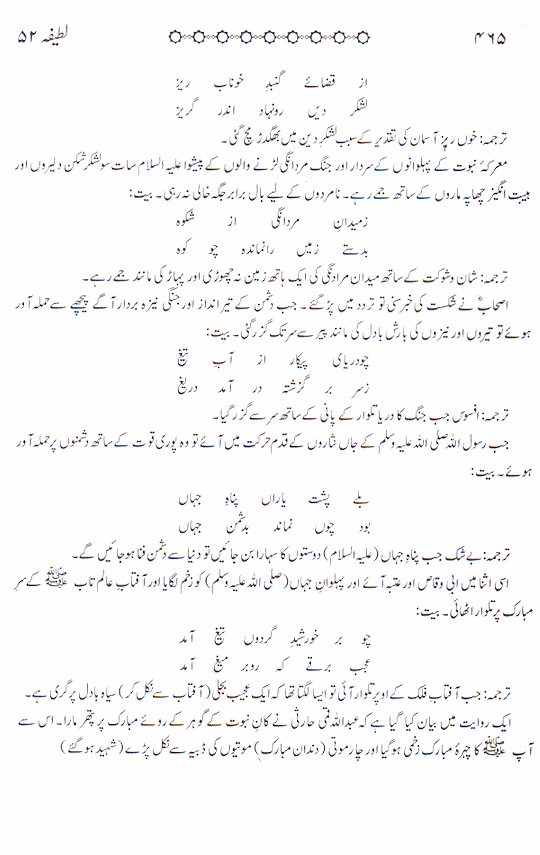 ۴۶۵ لطیفہ ۵۲
از قضائے گنبدِ خوناب ریز
لشکر دیں رونہاد اندر گریز
ترجمہ: خوں ریز آسمان کی تقدیر کے سبب لشکرِ دین میں بھگدڑ مچ گئی۔
معرکۂ نبوت کے پہلوانوں کے سردار اور جنگ مردانگی لڑنے والوں کے پیشوا علیہ السلام سات سو لشکر شکن دلیروں اور
ہیبت انگیز چھاپہ ماروں کے ساتھ جمے رہے۔ نامردوں کے لیے بال برابر جگہ خالی نہ رہی۔ بیت:
زمیدانِ مردانگی از شکوہ
بدستے زمیں راماندہ چو کوہ
ترجمہ: شان و شوکت کے ساتھ میدان مردانگی کی ایک ہاتھ زمین نہ چھوڑی اور پہاڑ کی مانند جمے رہے۔
اصحابؓ نے شکست کی خبر سنی تو تردد میں پڑ گئے۔ جب دشمن کے تیر انداز اور جنگی نیزہ بردار آگے پیچھے سے حملہ آور
ہوئے تو تیروں اور نیزوں کی بارش بادل کی مانند پیر سے سر تک گزر گئی۔ بیت:
چودریای پیکار از آبِ تیغ
زسر بر گزشتہ در آمد دریغ
ترجمہ: افسوس جب جنگ کا دریا تلوار کے پانی کے ساتھ سر سے گزر گیا۔
جب رسول اللہ صلی اللہ علیہ وسلم کے جاں نثاروں کے قدم حرکت میں آئے تو وہ پوری قوت کے ساتھ دشمنوں پر حملہ آور
ہوئے۔ بیت:
بلے پشت یاراں پناہِ جہاں
بود چوں نماند بدشمن جہاں
ترجمہ: بے شک جب پناہِ جہاں (علیہ السلام) دوستوں کا سہارا بن جائیں تو دنیا سے دشمن فنا ہو جائیں گے۔
اسی اثنا میں ابی وقاص اور عتبہ آئے اور پہلوانِ جہاں (صلی اللہ علیہ وسلم) کو زخم لگایا اور آفتابِ عالم تاب ﷺ کے سرِ
مبارک پر تلوار اٹھائی۔ بیت:
چو بر خورشیدِ گردوں تیغ آمد
عجب برقے کہ روبر میغ آمد
ترجمہ: جب آفتابِ فلک کے اوپر تلوار آئی تو ایسا لگتا تھا کہ ایک عجیب بجلی (آفتاب سے نکل کر) سیاہ بادل پر گری ہے۔
ایک روایت میں بیان کیا گیا ہے کہ عبداللہ قمی حارثی نے کانِ نبوت کے گوہر کے روئے مبارک پر پتھر مارا۔ اس سے
آپ ﷺ کا چہرۂ مبارک زخمی ہوگیا اور چار موتی (دندان مبارک) موتیوں کی ڈبیہ سے نکل پڑے (شہید ہوگئے)